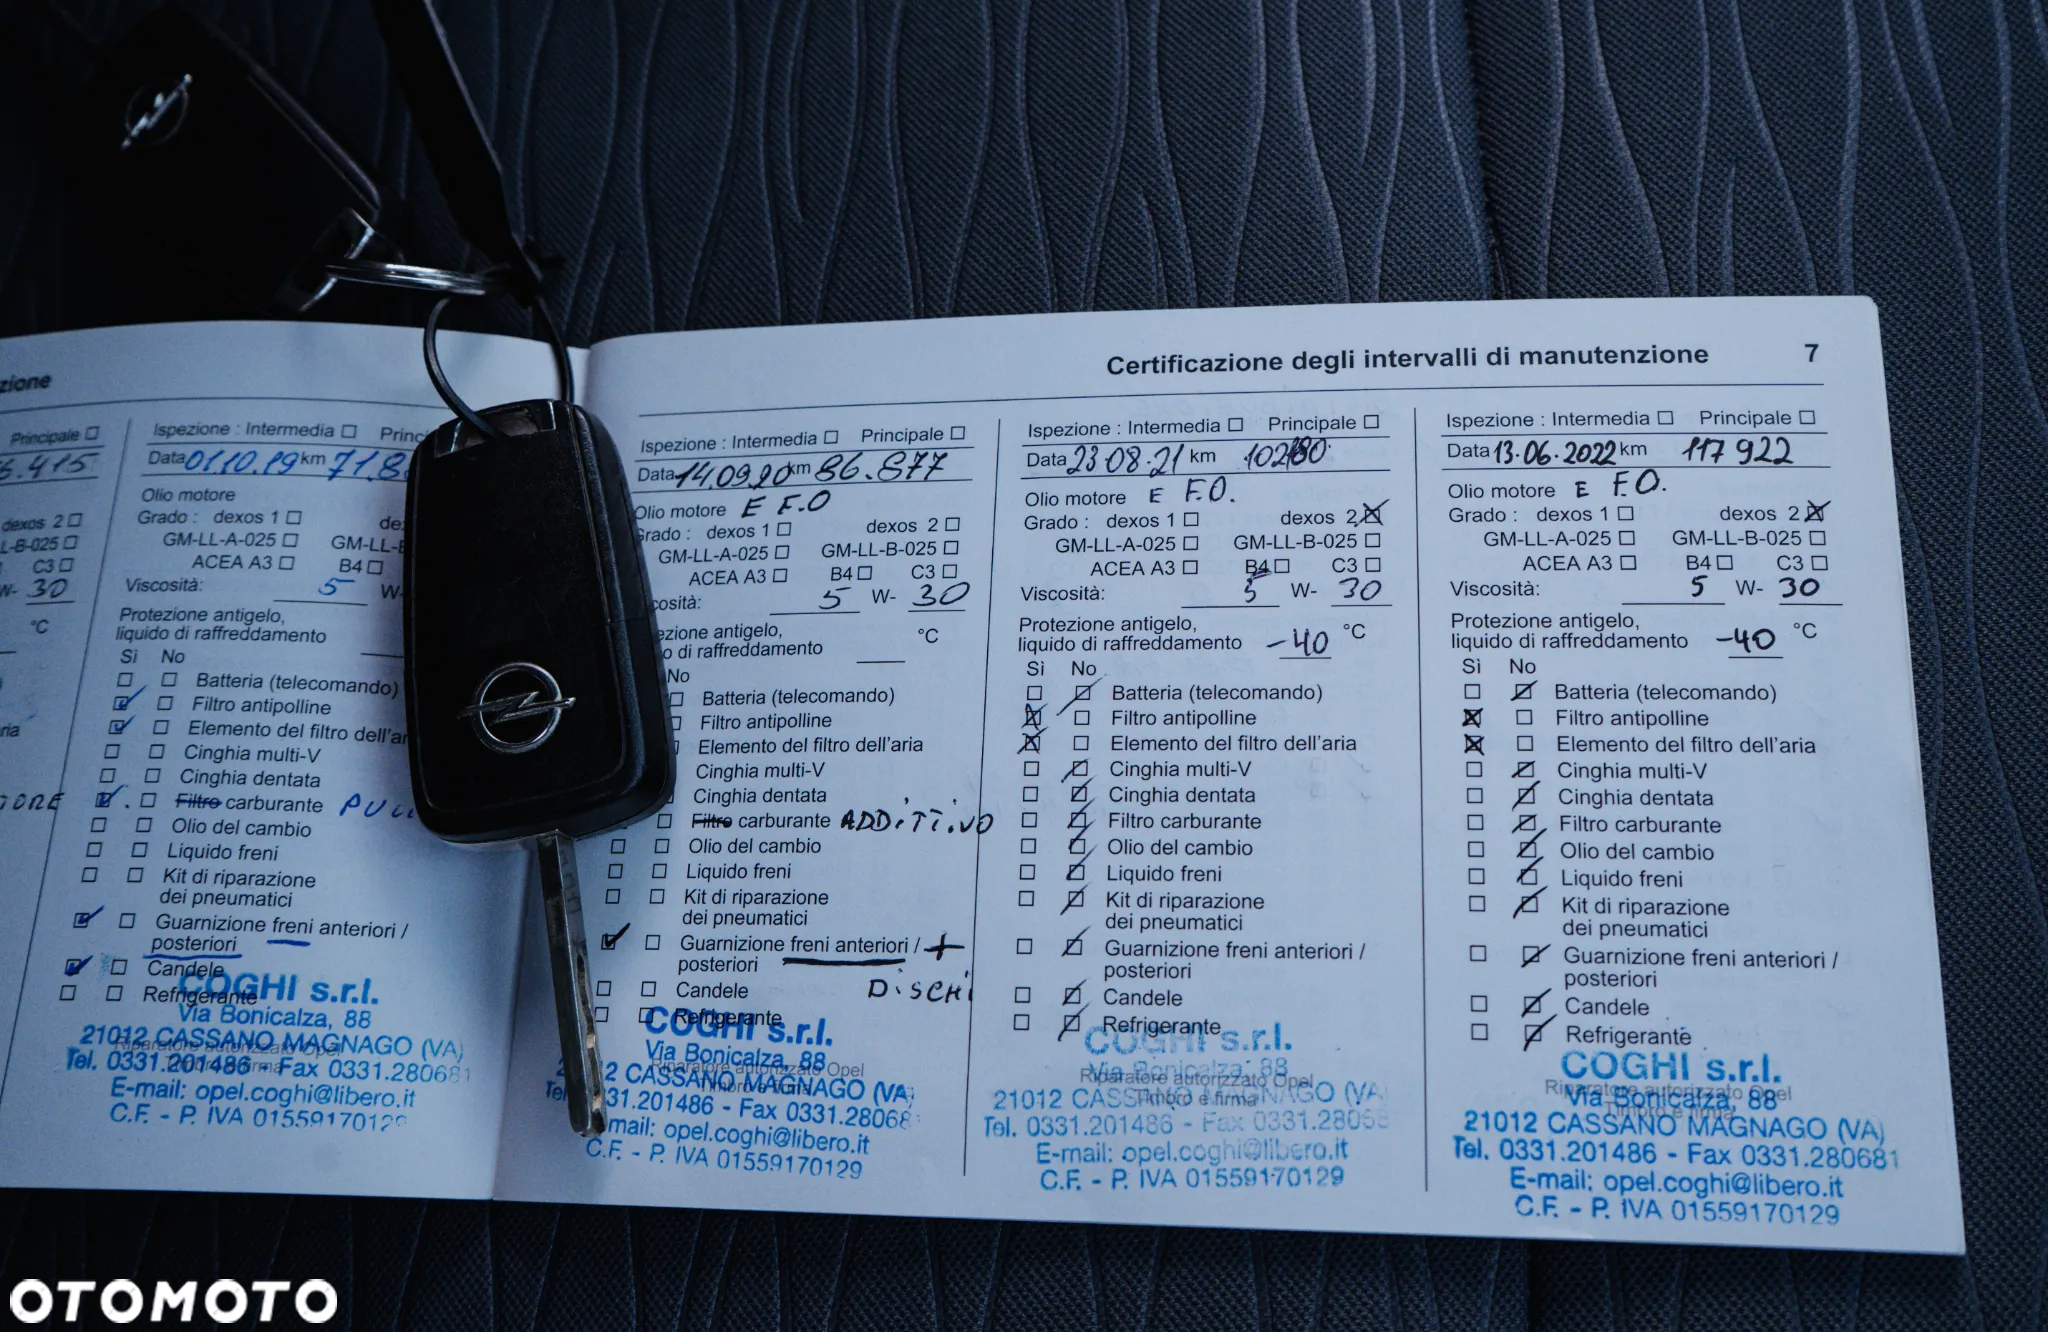 zione
Principale
6.415
dexos 2
L-B-025
C3
W- 30
°C
Ispezione : Intermedia
Data 01.10.19 km 71.8
Olio motore
Grado : dexos 1
GM-LL-A-025 GM-LL-B
ACEA A3 B4
Viscosità: 5 W-
Protezione antigelo,
liquido di raffreddamento
Sì No
Batteria (telecomando)
Filtro antipolline
Elemento del filtro dell'ar
Cinghia multi-V
Cinghia dentata
Filtro carburante
Olio del cambio
Liquido freni
Kit di riparazione
dei pneumatici
Guarnizione freni anteriori /
posteriori
Candele
Refrigerante
Riparatore autorizzato Opel
Timbro e firma
COGHI s.r.l.
Via Bonicalza, 88
21012 CASSANO MAGNAGO (VA)
Tel. 0331.201486 - Fax 0331.280681
E-mail: opel.coghi@libero.it
C.F. - P. IVA 0155917012
Certificazione degli intervalli di manutenzione 7
Ispezione : Intermedia Principale
Data 14.09.20 km 86.877
Olio motore E F.O
Grado : dexos 1 dexos 2
GM-LL-A-025 GM-LL-B-025
ACEA A3 B4 C3
cosità: 5 W- 30
ezione antigelo,
o di raffreddamento °C
No
Batteria (telecomando)
Filtro antipolline
Elemento del filtro dell'aria
Cinghia multi-V
Cinghia dentata
Filtro carburante ADDITIVO
Olio del cambio
Liquido freni
Kit di riparazione
dei pneumatici
Guarnizione freni anteriori / +
posteriori
Candele DISCHI
Refrigerante
Riparatore autorizzato Opel
Timbro e firma
COGHI s.r.l.
Via Bonicalza, 88
2 CASSANO MAGNAGO (VA)
31.201486 - Fax 0331.28068
mail: opel.coghi@libero.it
C.F. - P. IVA 01559170129
Ispezione : Intermedia Principale
Data 23.08.21 km
Olio motore E F.O.
Grado : dexos 1 dexos 2
GM-LL-A-025 GM-LL-B-025
ACEA A3 B4 C3
Viscosità: 5 W- 30
Protezione antigelo,
liquido di raffreddamento -40 °C
Sì No
Batteria (telecomando)
Filtro antipolline
Elemento del filtro dell'aria
Cinghia multi-V
Cinghia dentata
Filtro carburante
Olio del cambio
Liquido freni
Kit di riparazione
dei pneumatici
Guarnizione freni anteriori /
posteriori
Candele
Refrigerante
Riparatore autorizzato Opel
Timbro e firma
COGHI s.r.l.
Via Bonicalza, 88
21012 CASSANO MAGNAGO (VA
Tel. 0331.201486 - Fax 0331.28068
E-mail: opel.coghi@libero.it
C.F. - P. IVA 01559170129
Ispezione : Intermedia Principale
Data 13.06.2022 km 117 922
Olio motore E F.O.
Grado : dexos 1 dexos 2
GM-LL-A-025 GM-LL-B-025
ACEA A3 B4 C3
Viscosità: 5 W- 30
Protezione antigelo,
liquido di raffreddamento -40 °C
Sì No
Batteria (telecomando)
Filtro antipolline
Elemento del filtro dell'aria
Cinghia multi-V
Cinghia dentata
Filtro carburante
Olio del cambio
Liquido freni
Kit di riparazione
dei pneumatici
Guarnizione freni anteriori /
posteriori
Candele
Refrigerante
Riparatore autorizzato Opel
Timbro e firma
COGHI s.r.l.
Via Bonicalza, 88
21012 CASSANO MAGNAGO (VA)
Tel. 0331.201486 - Fax 0331.280681
E-mail: opel.coghi@libero.it
C.F. - P. IVA 01559170129
OTOMOTO